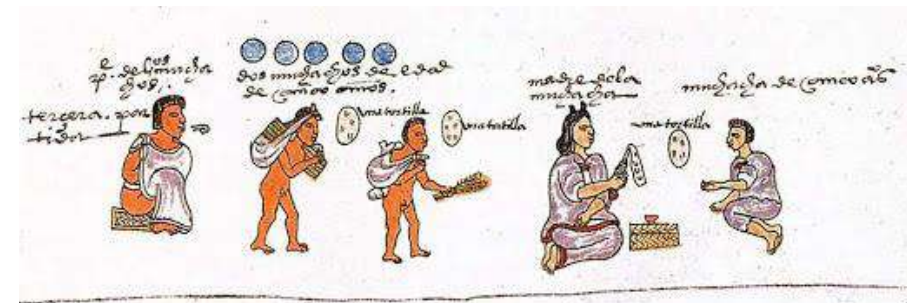 pe. de los mucha
chos.
tercera. par
tida
dos muchachos de edad
de cinco años.
una tortilla
una tortilla
madre de la
muchacha
una tortilla
muchacha de cinco aºs